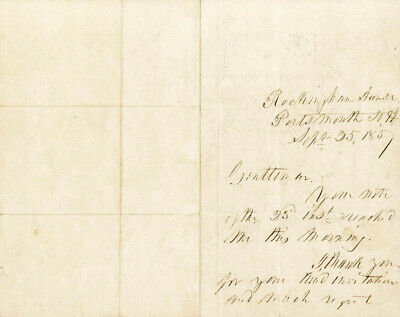 Rockingham House
Portsmouth N.H
Sept. 25, 1857
Gentlemen.
Your note
of the 23d inst. reached
me this morning.
I thank you
for your kind invitation
and much regret